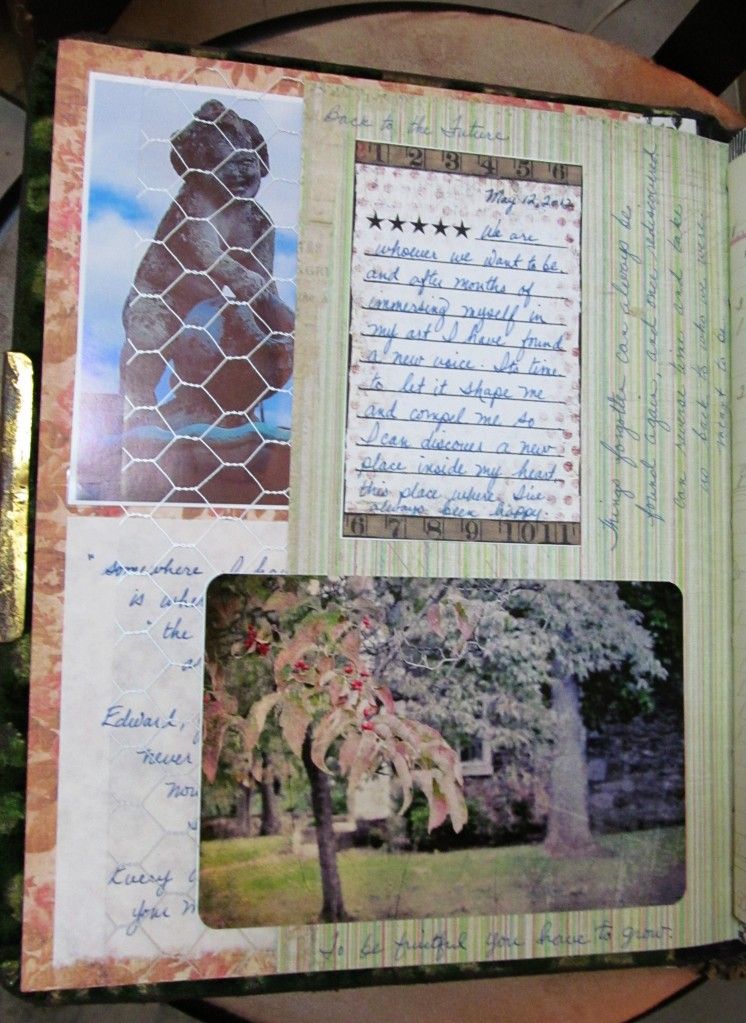 Back to the Future
1 2 3 4 5 6
May 12, 2012
★★★★★ We are
whoever we want to be,
and after months of
immersing myself in
my art I have found
a new voice. It's time
to let it shape me
and compel me so
I can discover a new
place inside my heart,
this place where I've
always been happy.
6 7 8 9 10 11
Things forgotten can always be
found again, and once rediscovered
can reverse time and take
us back to who we were
meant to be
"somewhere I
is
"the
Edward,
never
Every
your
To be fruitful you have to grow.